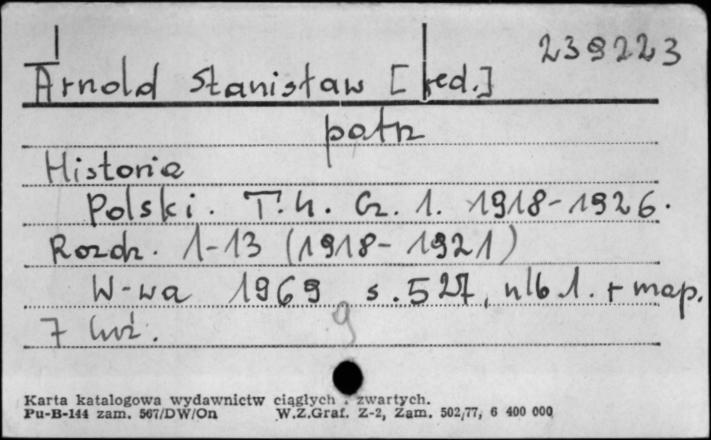 239223
Arnold Stanisław [red.]
patrz
Historia
Polski. T.4. Cz. 1. 1918-1926.
Rozdz. 1-13 (1918-1921)
W-wa 1969 s. 527, nlb 1. + map.
7 luź.
9
Karta katalogowa wydawnictw ciągłych i zwartych.
Pu-B-144 zam. 567/DW/On W.Z.Graf. Z-2, Zam. 502/77, 6 400 000